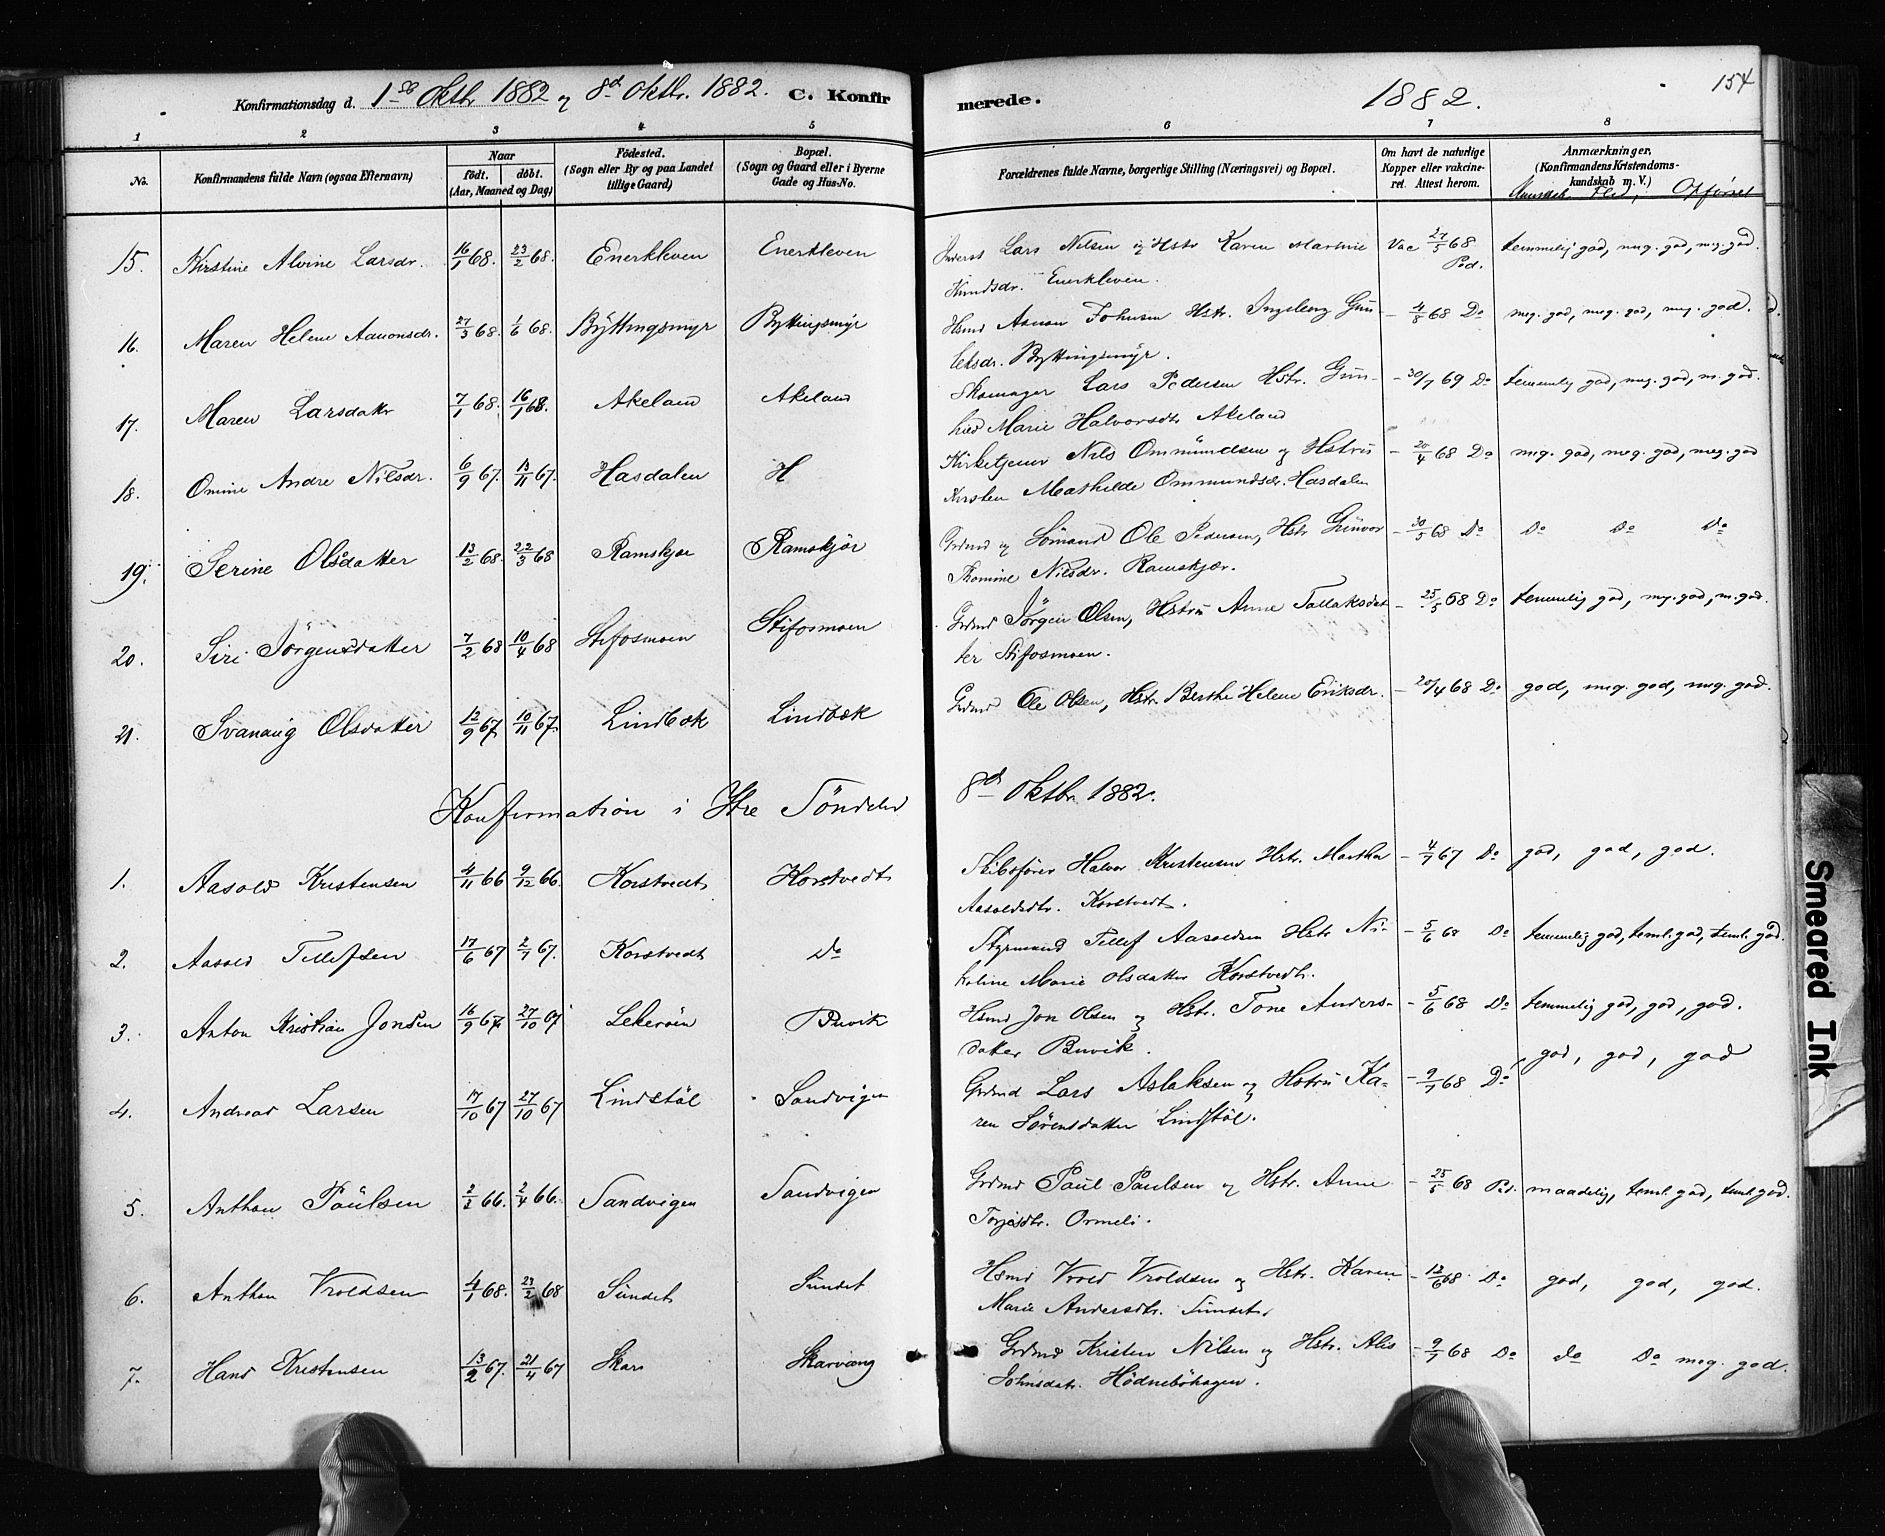 Konfirmationsdag d. 1ste Oktbr 1882 og 8d Oktbr. 1882. C. Konfirmerede. 1882. 154
1 2 3 4 5 6 7 8
No.
Konfirmandens fulde Navn (ogsaa Efternavn)
Naar
født. døbt.
(Aar, Maaned og Dag)
Fødested.
(Sogn eller By og paa Landet
tillige Gaard)
Bopæl.
(Sogn og Gaard eller i Byerne
Gade og Hus-No.
Forældrenes fulde Navne, borgerlige Stilling (Næringsvei) og Bopæl.
Om havt de naturlige
Kopper eller vakcine-
ret. Attest herom.
Anmærkninger,
(Konfirmandens Kristendoms-
kundskab m. V.)
Kundskab, Flid, Opførsel
15. Kirstine Alvine Larsdr. 16/1 68. 23/2 68. Enerkleven Enerkleven Lars Nilsen og Hstr Karen Martine Vac 27/5 68 Ped. temmelig god, meg. god, mg. god.
Knudsdr. Enerkleven.
16. Maren Helene Aanonsdr. 27/3 68. 1/6 68. Byttingsmyr Byttingsmyr Hsmd Aanon Johnsen Hstr. Ingeborg Gun- — 4/8 68 Do meg. god, meg. god, meg. god.
leksdr. Byttingsmyr.
17. Maren Larsdatter 7/1 68. 16/1 68. Akeland Akeland Skomager Lars Pedersen Hstr. Gun- — 30/7 69 Do temmelig god, meg. god, m. god.
hild Marie Halvorsdtr Akeland
18. Omine Andre Nilsdr. 6/9 67. 13/11 67. Hasdalen H Kirketjener Nils Ommundsen og Hstru — 20/4 68 Do meg. god, meg. god, meg. god
Kirsten Mathilde Ommundsdr. Hasdalen
19. Serine Olsdatter 13/2 68. 22/3 68 Ramskjær Ramskjær Grdmd og Sømand Ole Pedersen, Hstr Gunvor — 30/5 68 Do Do Do Do
Thomine Nilsdr. Ramskjær.
20. Siri Jörgensdatter 7/2 68 10/4 68 Stifosmoen Stifosmoen Grdmd Jörgen Olsen, Hstru Anne Tallaksdat — 25/5 68 Do temmelig god, mg. god, m. god.
ter Stifosmoen.
21. Svanaug Olsdatter 12/9 67. 10/11 67. Lindbæk Lindbæk Grdmd Ole Olsen, Hstr. Berthe Helene Eriksdr. — 20/4 68 Do god, meg. god, meg. god.
Konfirmation i Ytre Söndeled 8d Oktbr. 1882.
1. Aasold Kristensen 4/11 66 9/12 66. Korstvedt Horstvedt Skibsfører Halvor Kristensen Hstr. Martha — 4/7 67 Do god, god, god.
Aasoldsdtr. Korstvedt.
2. Aasold Tellefsen 17/6 67 2/7 67. Korstvedt Do Styrmand Tellef Aasoldsen Hstr Ni- — 5/6 68 Do temmelig god, teml. god, teml. god.
koline Marie Olsdatter Korstvedt.
3. Anton Kristian Jonsen 16/9 67. 27/10 67 Lekeröen Buvik Hsmd Jon Olsen og Hstr. Tone Anders- — 5/6 68 Do temmelig god, god, god.
datter Buvik.
4. Andreas Larsen 17/10 67 27/10 67 Lindstöl Sandvigen Grdmd Lars Aslaksen og Hstru Ka- — 9/7 68 Do god, god, god
ren Sörensdatter Lindstöl.
5. Anthon Paulsen 2/2 66. 2/4 66. Sandvigen Sandvigen Grdmd Paul Paulsen og Hstr. Anne — 25/5 68 Ped. maadelig, teml. god, teml god.
Torjusdtr. Ormeli.
6. Anthon Vroldsen 4/1 68. 23/2 68 Sundet Sundet Hsmd Vrold Vroldsen og Hstr. Karen — 12/6 68. Do god, god, god.
Marie Andersdtr. Sundet.
7. Hans Kristensen 13/2 67. 21/4 67 Skar Skarvang Grdmd Kristen Nilsen og Hstr. Alis — 9/7 68 Do do Do meg. god.
Johnsdatr. Hödneböhagen.
Smeared Ink